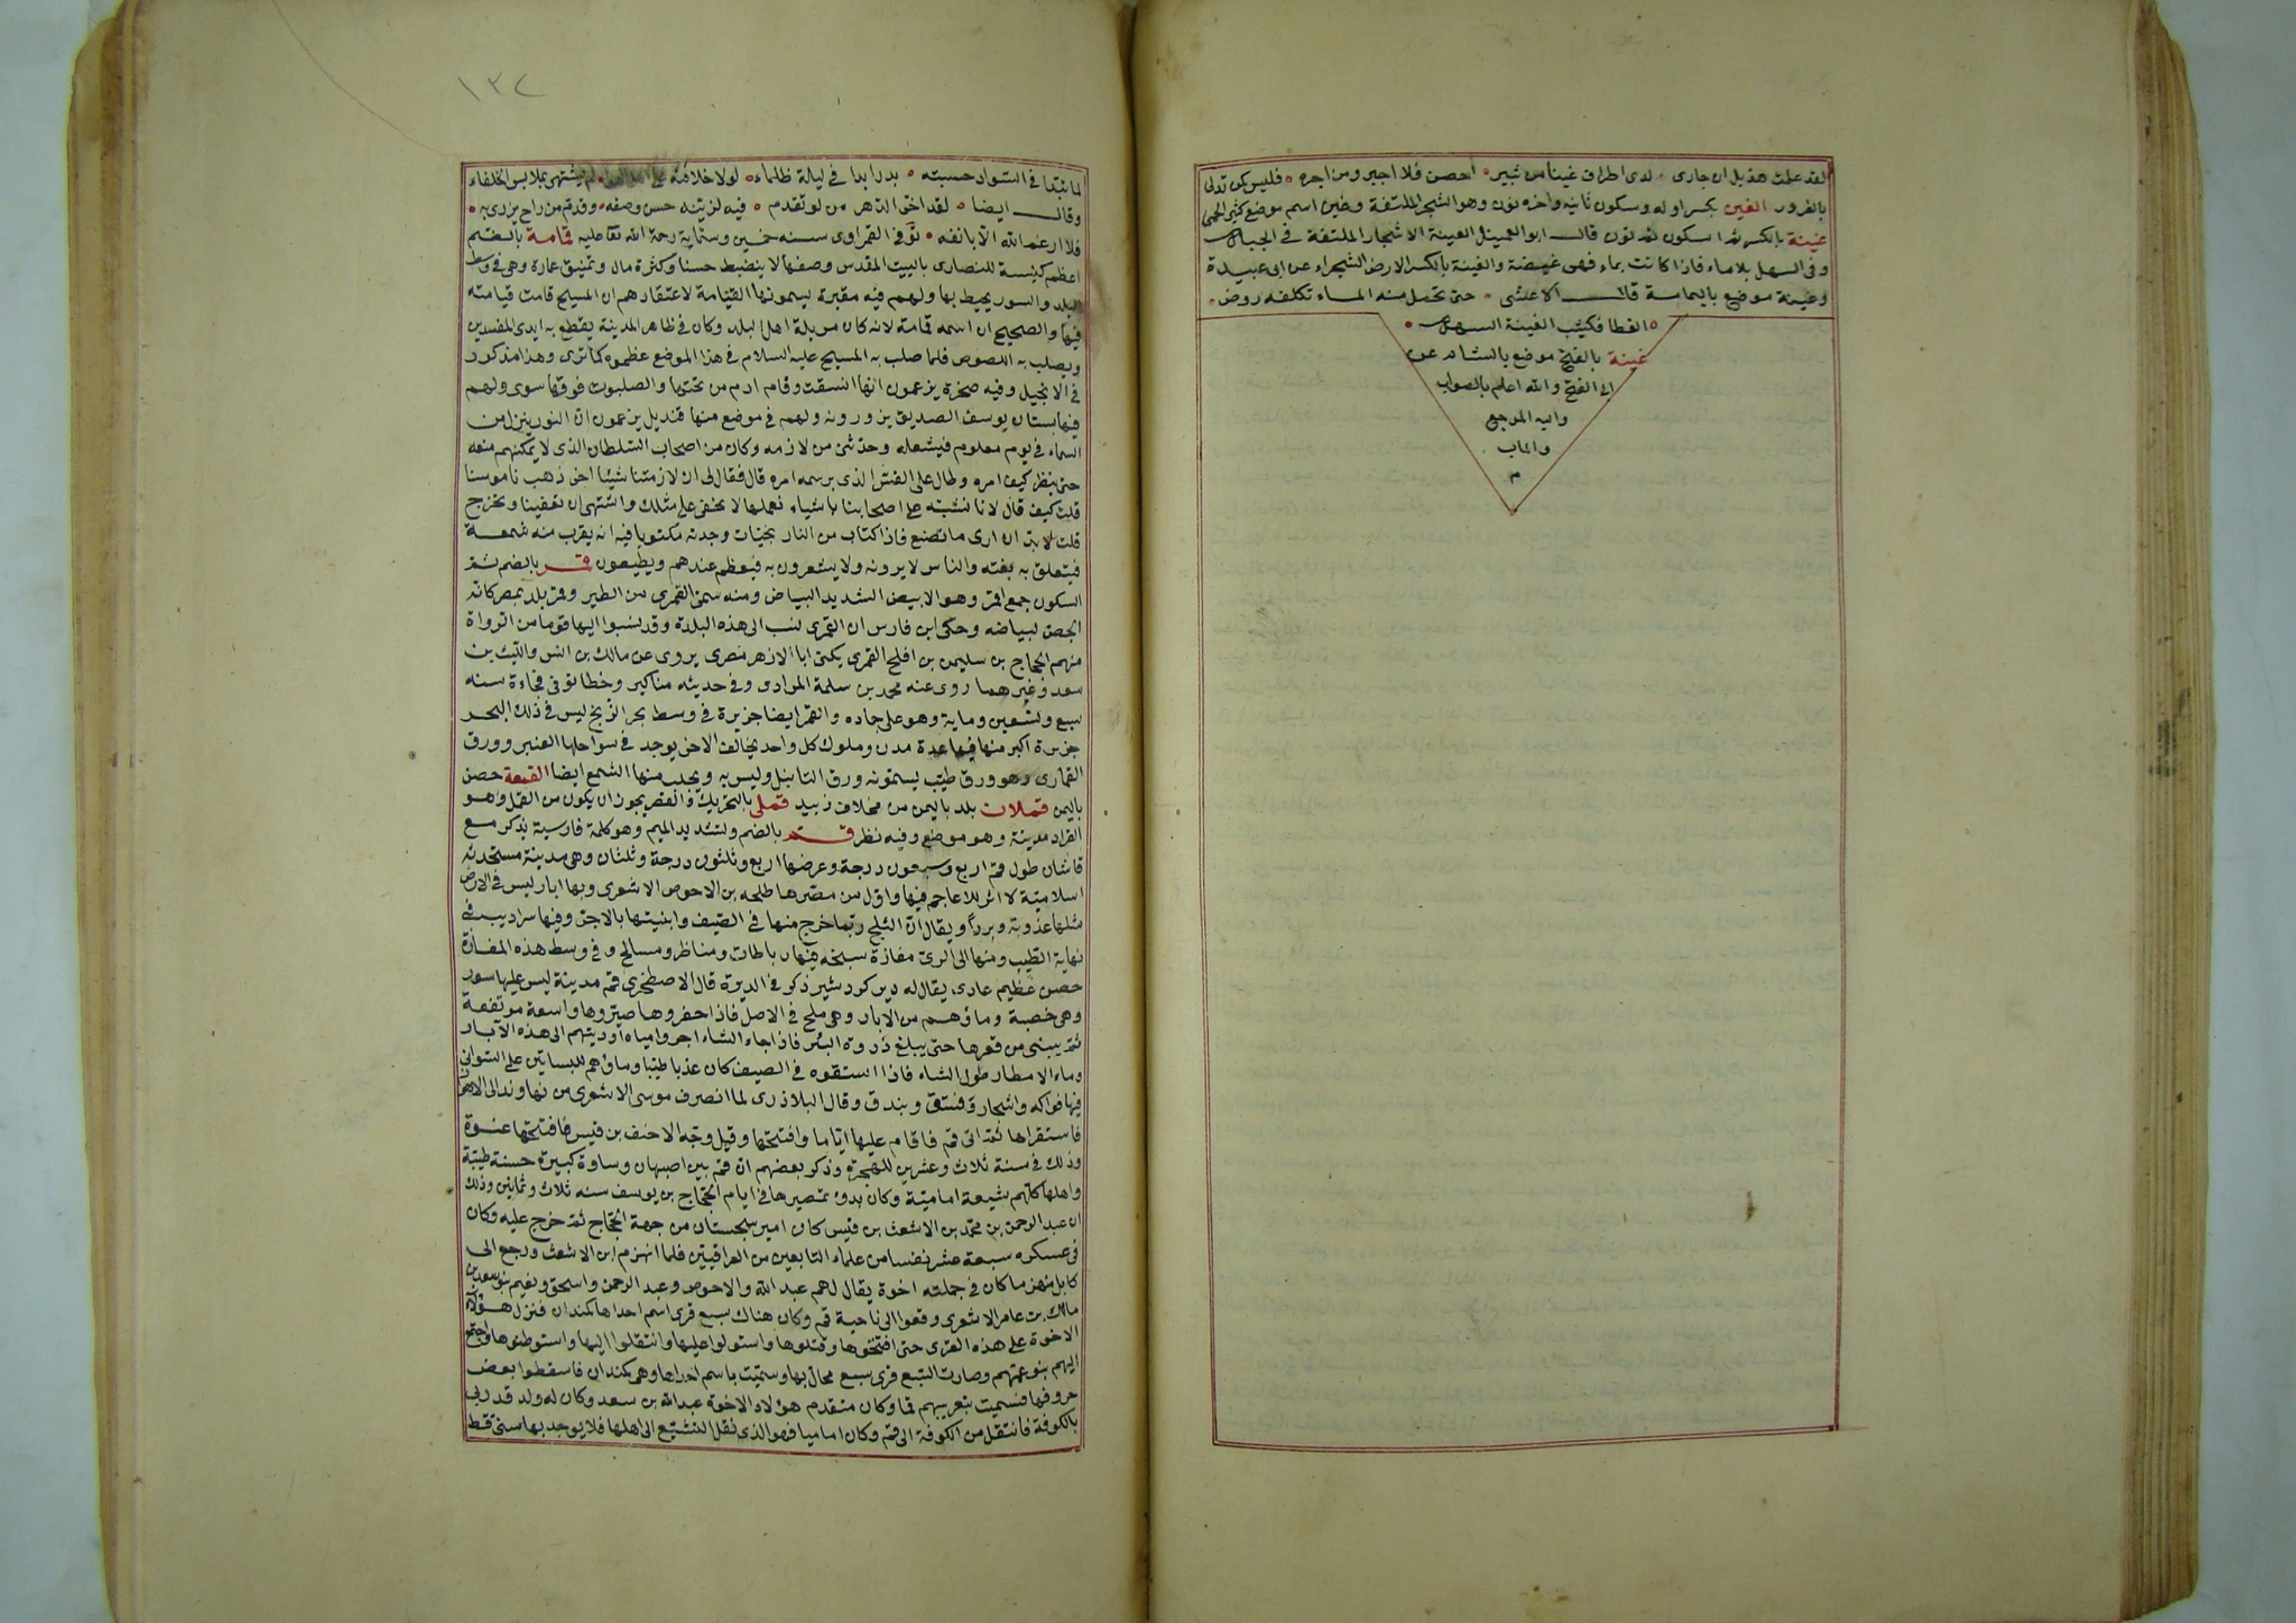 لقد علمت هذيل ان جارى ۰ لدى اطراف غينا من ثبير ۰ احصن فلا اجير ومن اجره ۰ فليس كمن تدلى
بالغرور الغين بكسر اوله وسكون ثانيه واخره نون وهو الشجر الملتفة وغين اسم موضع كثير الحمى
غينة بالكسر ثم السكون ثم نون قال ابو العميثل الغينة الاشجار الملتفة في الجبال
وفى السهل بلا ماء فاذا كانت بماء فهى غيضة والغينة بالكسر الارض الشجراء عن ابى عبيدة
وغينة موضع باليمامة قال الاعشى ۰ حتى تحمل منه الماء تكلفه روض ۰
۰ القطا فكثيب الغينة السهل ۰
غينة بالفتح موضع بالشام عن
ابى الفتح والله اعلم بالصواب
واليه المرجع
والماب
م
١٣٧
لما بتدا فى السواد حسبته ۰ بدرا بدا فى ليلة ظلماء ۰ لولا خلافته على لم يشتهى بملابس الخلفاء
وقال ايضا ۰ لقد اخر الدهر من لو تقدم ۰ فيه لزينه حسن وصفه ۰ وقدم من راح يزرى به ۰
فلا ارغم الله الا بانفه ۰ توفى القمراوى سنه خمسين وستماية رحمة الله تعا عليه قمامة بالضم
اعظم كنيسة للنصارى بالبيت المقدس وصفها لا ينضبط حسنا وكثرة مال وتنميق عمارة وهى فى وسط
البلد والسور يحيط بها ولهم فيه مقبرة يسمونها القيامة لاعتقادهم ان المسيح قامت قيامته
فيها والصحيح ان اسمه قمامة لانه كان مزبلة اهل البلد وكان فى ظاهر المدينة يقطع به ايدى المفسدين
ويصلب به اللصوص فلما صلب به المسيح عليه السلام فى هذا الموضع عظموه كما ترى وهذا مذكور
فى الانجيل وفيه صخرة يزعمون انها انشقت وقام ادم من تحتها والصلبوت فوقها سوى ولهم
فيها بستان يوسف الصديق يزورونه ولهم فى موضع منها قنديل يزعمون ان النور ينزل من
السماء فى يوم معلوم فيشعله وحدثنى من لازمه وكان من اصحاب السلطان الذى لا يمكنهم منعه
حتى ينظر كيف امره وطال على القس الذى برسمه امره قال فقال لى ان لازمتنا شيئا اخر ذهب ناموسنا
قلت كيف قال لانا نشبه على اصحابنا باشياء نعملها لا يخفى على مثلك واشتهى ان تعفينا وتخرج
قلت لا بد ان ارى ما تصنع فاذا كتاب من النار نجيات وجدته مكتوبا فيه انه يقرب منه شمعة
فيتعلق به بغتة والناس لا يرونه ولا يشعرون به فيعظم عندهم ويطيعون قمر بالضم ثم
السكون جمع اقمر وهو الابيض الشديد البياض ومنه سمى القمرى من الطير وقمر بلد بمصر كانه
الجص لبياضه وحكى ابن فارس ان القمرى نسب الى هذه البلدة وقد نسبوا اليها قوما من الرواة
منهم الحجاج بن سليمن بن افلح القمرى يكنى ابا الازهر مصرى يروى عن مالك بن انس والليث بن
سعد وغيرهما روى عنه محمد بن سلمة المرادى وفى حديثه مناكير وخطا توفى فجاءة سنه
سبع وتسعين وماية وهو على حماره والقمر ايضا جزيرة فى وسط بحر الزنج ليس فى ذلك البحر
جزيرة اكبر منها فيها عدة مدن وملوك كل واحد يخالف الاخر يوجد فى سواحلها العنبر وورق
القمارى وهو ورق طيب يسمونه ورق التانبل وليس به ويجلب منها الشمع ايضا القمعة حصن
باليمن قملان بلد باليمن من مخلاف زبيد قملى بالتحريك والقصر يجوز ان يكون من القمل وهو
القراد مدينة وهو موضع وفيه نظر قم بالضم وتشديد الميم وهو كلمة فارسية يذكر مع
قاشان طول قم اربع وسبعون درجة وعرضها اربع وثلثون درجة وثلثان وهى مدينة مستحدثه
اسلامية لا اثر للاعاجم فيها واول من مصرها طلحه بن الاحوص الاشعرى وبها ابار ليس فى الارض
مثلها عذوبة وبردا ويقال ان الثلج ربما خرج منها فى الصيف وابنيتها بالاجر وفيها سراديب فى
نهاية الطيب ومنها الى الرى مفازة سبخه فيها رباطات ومناظر ومسالح وفى وسط هذه المفازة
حصن عظيم عادى يقال له دير كردشير ذكر فى الديرة قال الاصطخرى قم مدينة ليس عليها سور
وهى خصبة وماؤهم من الابار وهى ملح فى الاصل فاذا حفروها صيروها واسعة مرتفعة
ثم يبنى من قعرها حتى يبلغ ذروة البئر فاذا جاء الشتاء اجروا مياه اوديتهم الى هذه الابار
وماء الامطار طول الشتاء فاذا استقوه فى الصيف كان عذبا طيبا وماؤهم للبساتين على السوانى
فيها فواكه واشجار وفستق وبندق وقال البلاذرى لما انصرف موسى الاشعرى من نهاوند الى الاهواز
فاستقراها ثم اتى قم فاقام عليها اياما وافتتحها وقيل وجه الاحنف بن قيس فافتتحها عنوة
وذلك فى سنة ثلاث وعشرين للهجرة وذكر بعضهم ان قم بين اصبهان وساوة كبيرة حسنة طيبة
واهلها كلهم شيعة امامية وكان بدؤ تمصيرها فى ايام الحجاج بن يوسف سنه ثلاث وثمانين وذلك
ان عبد الرحمن بن محمد بن الاشعث بن قيس كان امير سجستان من جهة الحجاج ثم خرج عليه وكان
فى عسكره سبعة عشر نفسا من علماء التابعين من العراقيين فلما انهزم ابن الاشعث ورجع الى
كابل منهزما كان فى جملته اخوة يقال لهم عبد الله والاحوص وعبد الرحمن واسحق ونعيم بنو سعد بن
مالك بن عامر الاشعرى وقعوا الى ناحية قم وكان هناك سبع قرى اسم احداها كمندان فنزل هؤلاء
الاخوة على هذه القرى حتى افتتحوها وقتلوها واستولوا عليها وانتقلوا اليها واستوطنوها واجتمع
اليهم بنو عمهم وصارت السبع قرى سبع محال بها وسميت باسم احداها وهى كمندان فاسقطوا بعض
حروفها فسميت بتعريبهم قما وكان متقدم هؤلاء الاخوة عبد الله بن سعد وكان له ولد قد ربى
بالكوفة فانتقل من الكوفة الى قم وكان اماميا فهو الذى نقل التشيع الى اهلها فلا يوجد بها سنى قط